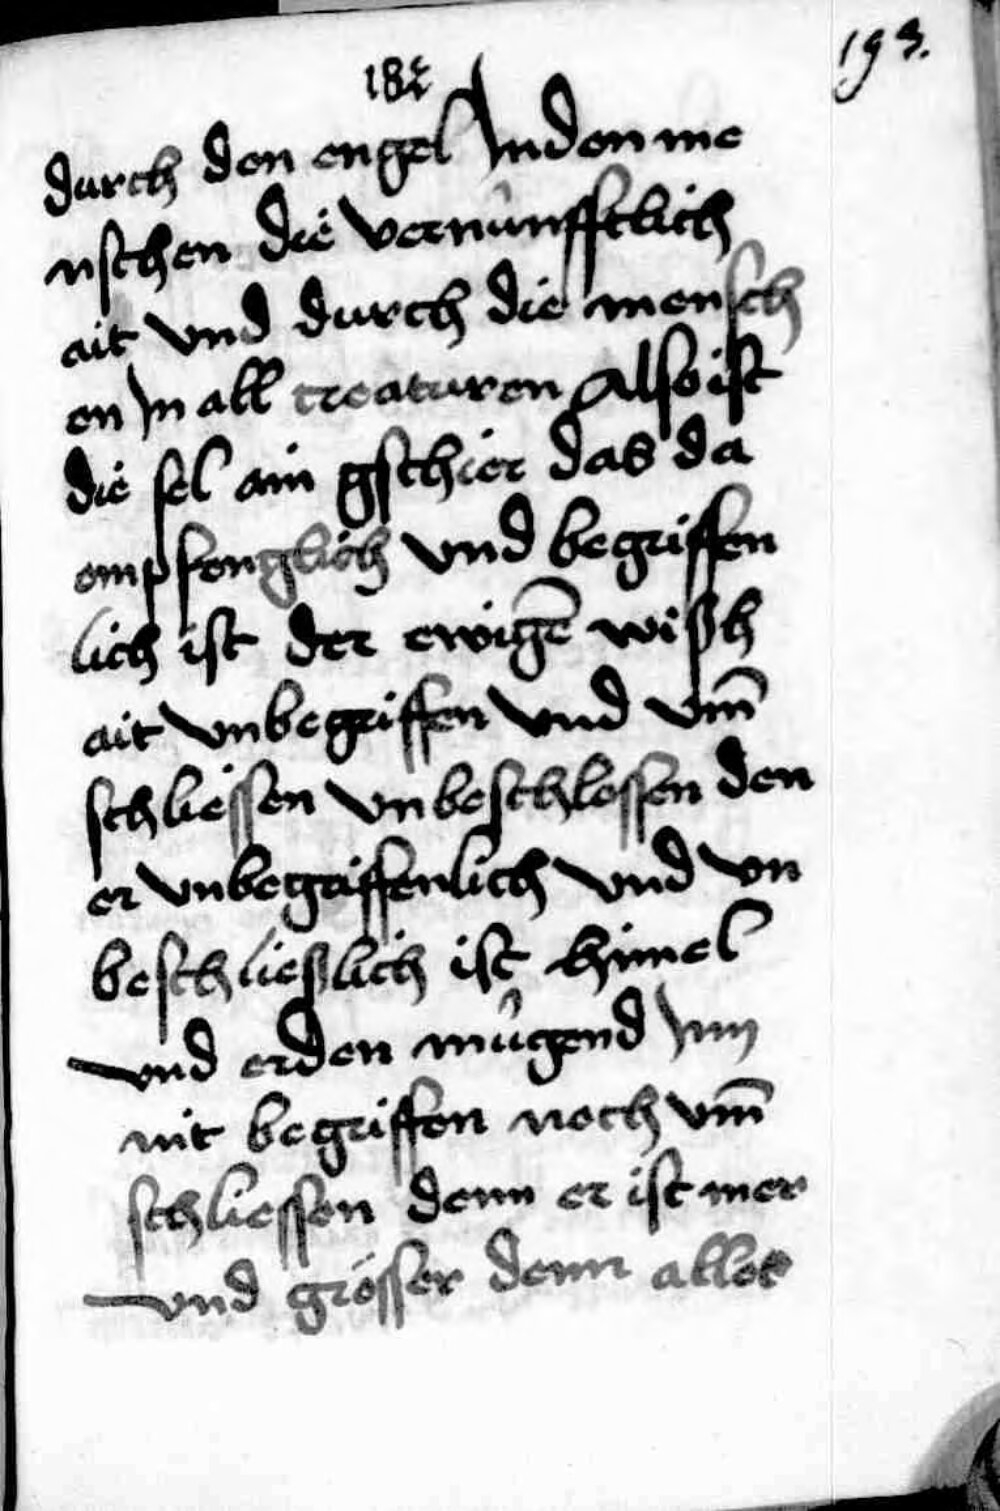 193.
182
durch den engel Jn den me
nschen die vernúnfftlich
ait vnd durch die mensch
en Jn all creaturen Also ist
die sel ain gschier das da
empfenglich vnd begriffen
lich ist der ewigē wißh
ait vnbegriffen vnd vm̄
schliessen vnbeschlossen den
er vnbegriffenlich vnd vn
beschließlich ist himel
vnd erden múgend Jnn
nit begriffen noch vm̄
schliessen denn er ist mer
vnd grösser denn alles